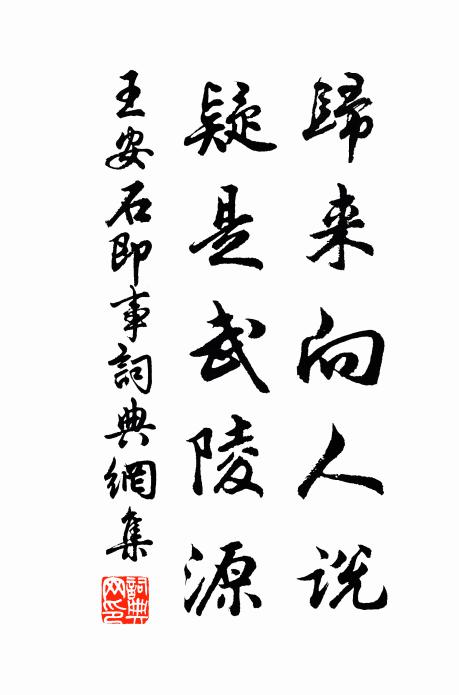 歸来向人説
疑是武陵源
王安石即事詞典網集
詞典网印